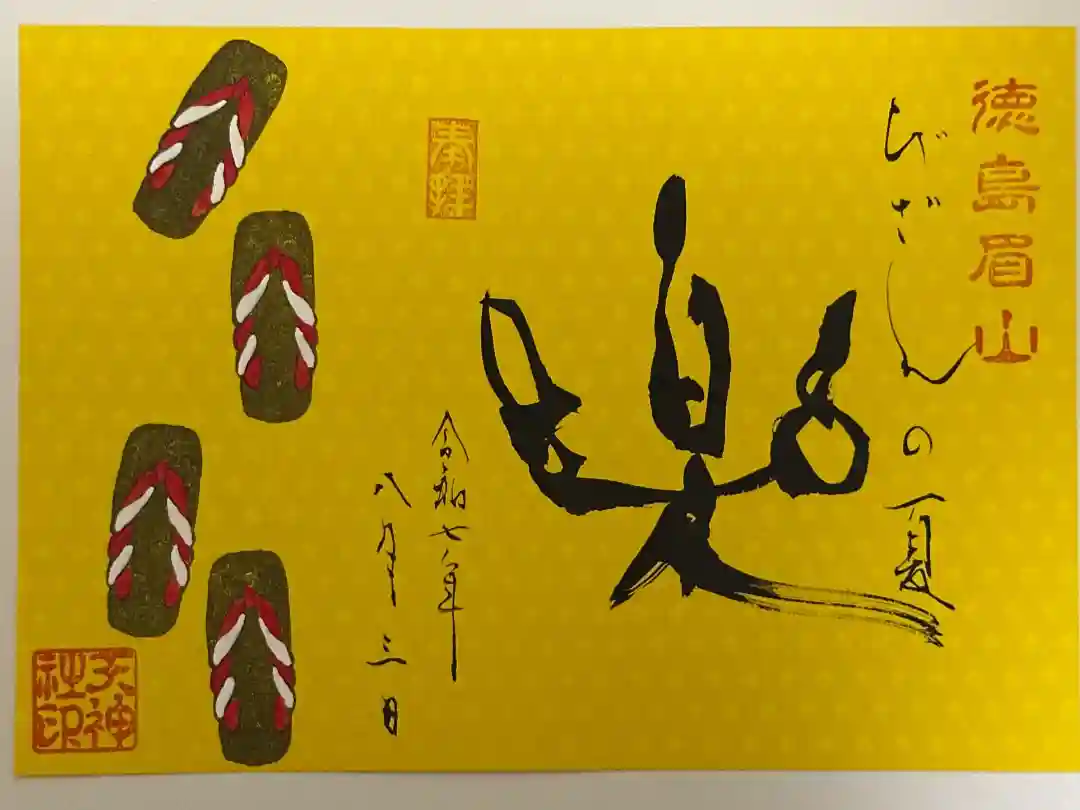 徳島眉山
びざんの夏
楽
奉拝
令和七年
八月十三日
天神社印